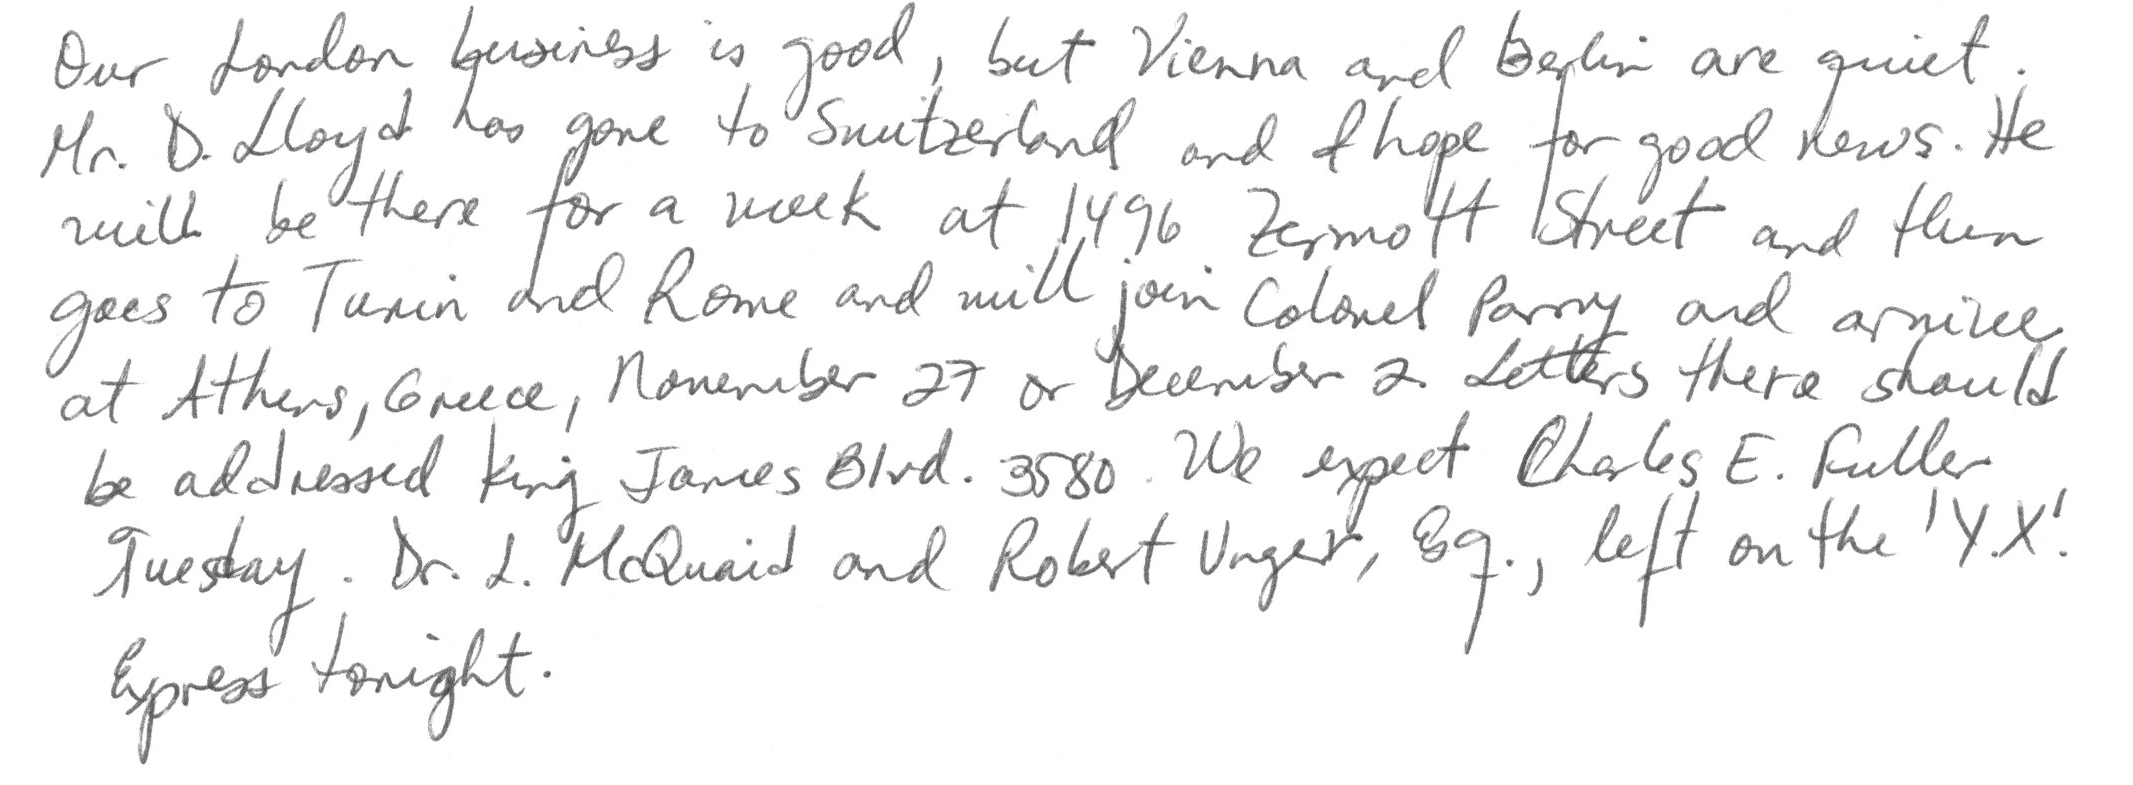 Our London business is good, but Vienna and Berlin are quiet.
Mr. D. Lloyd has gone to Switzerland and I hope for good news. He
will be there for a week at 1496 Zermott Street and then
goes to Turin and Rome and will join Colonel Parry and arrive
at Athens, Greece, November 27 or December 2. Letters there should
be addressed King James Blvd. 3580. We expect Charles E. Fuller
Tuesday. Dr. L. McQuaid and Robert Unger, Esq., left on the 'Y.X.'
Express tonight.